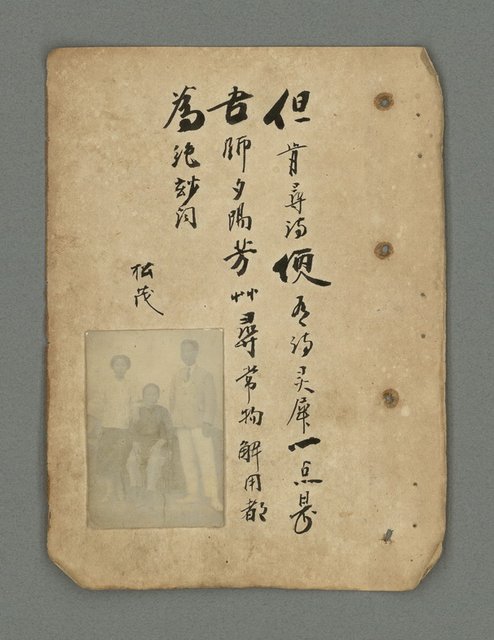 但肯尋诗便有诗灵犀一点是
吾師夕陽芳艸尋常物解用都
為絶妙词
松茂